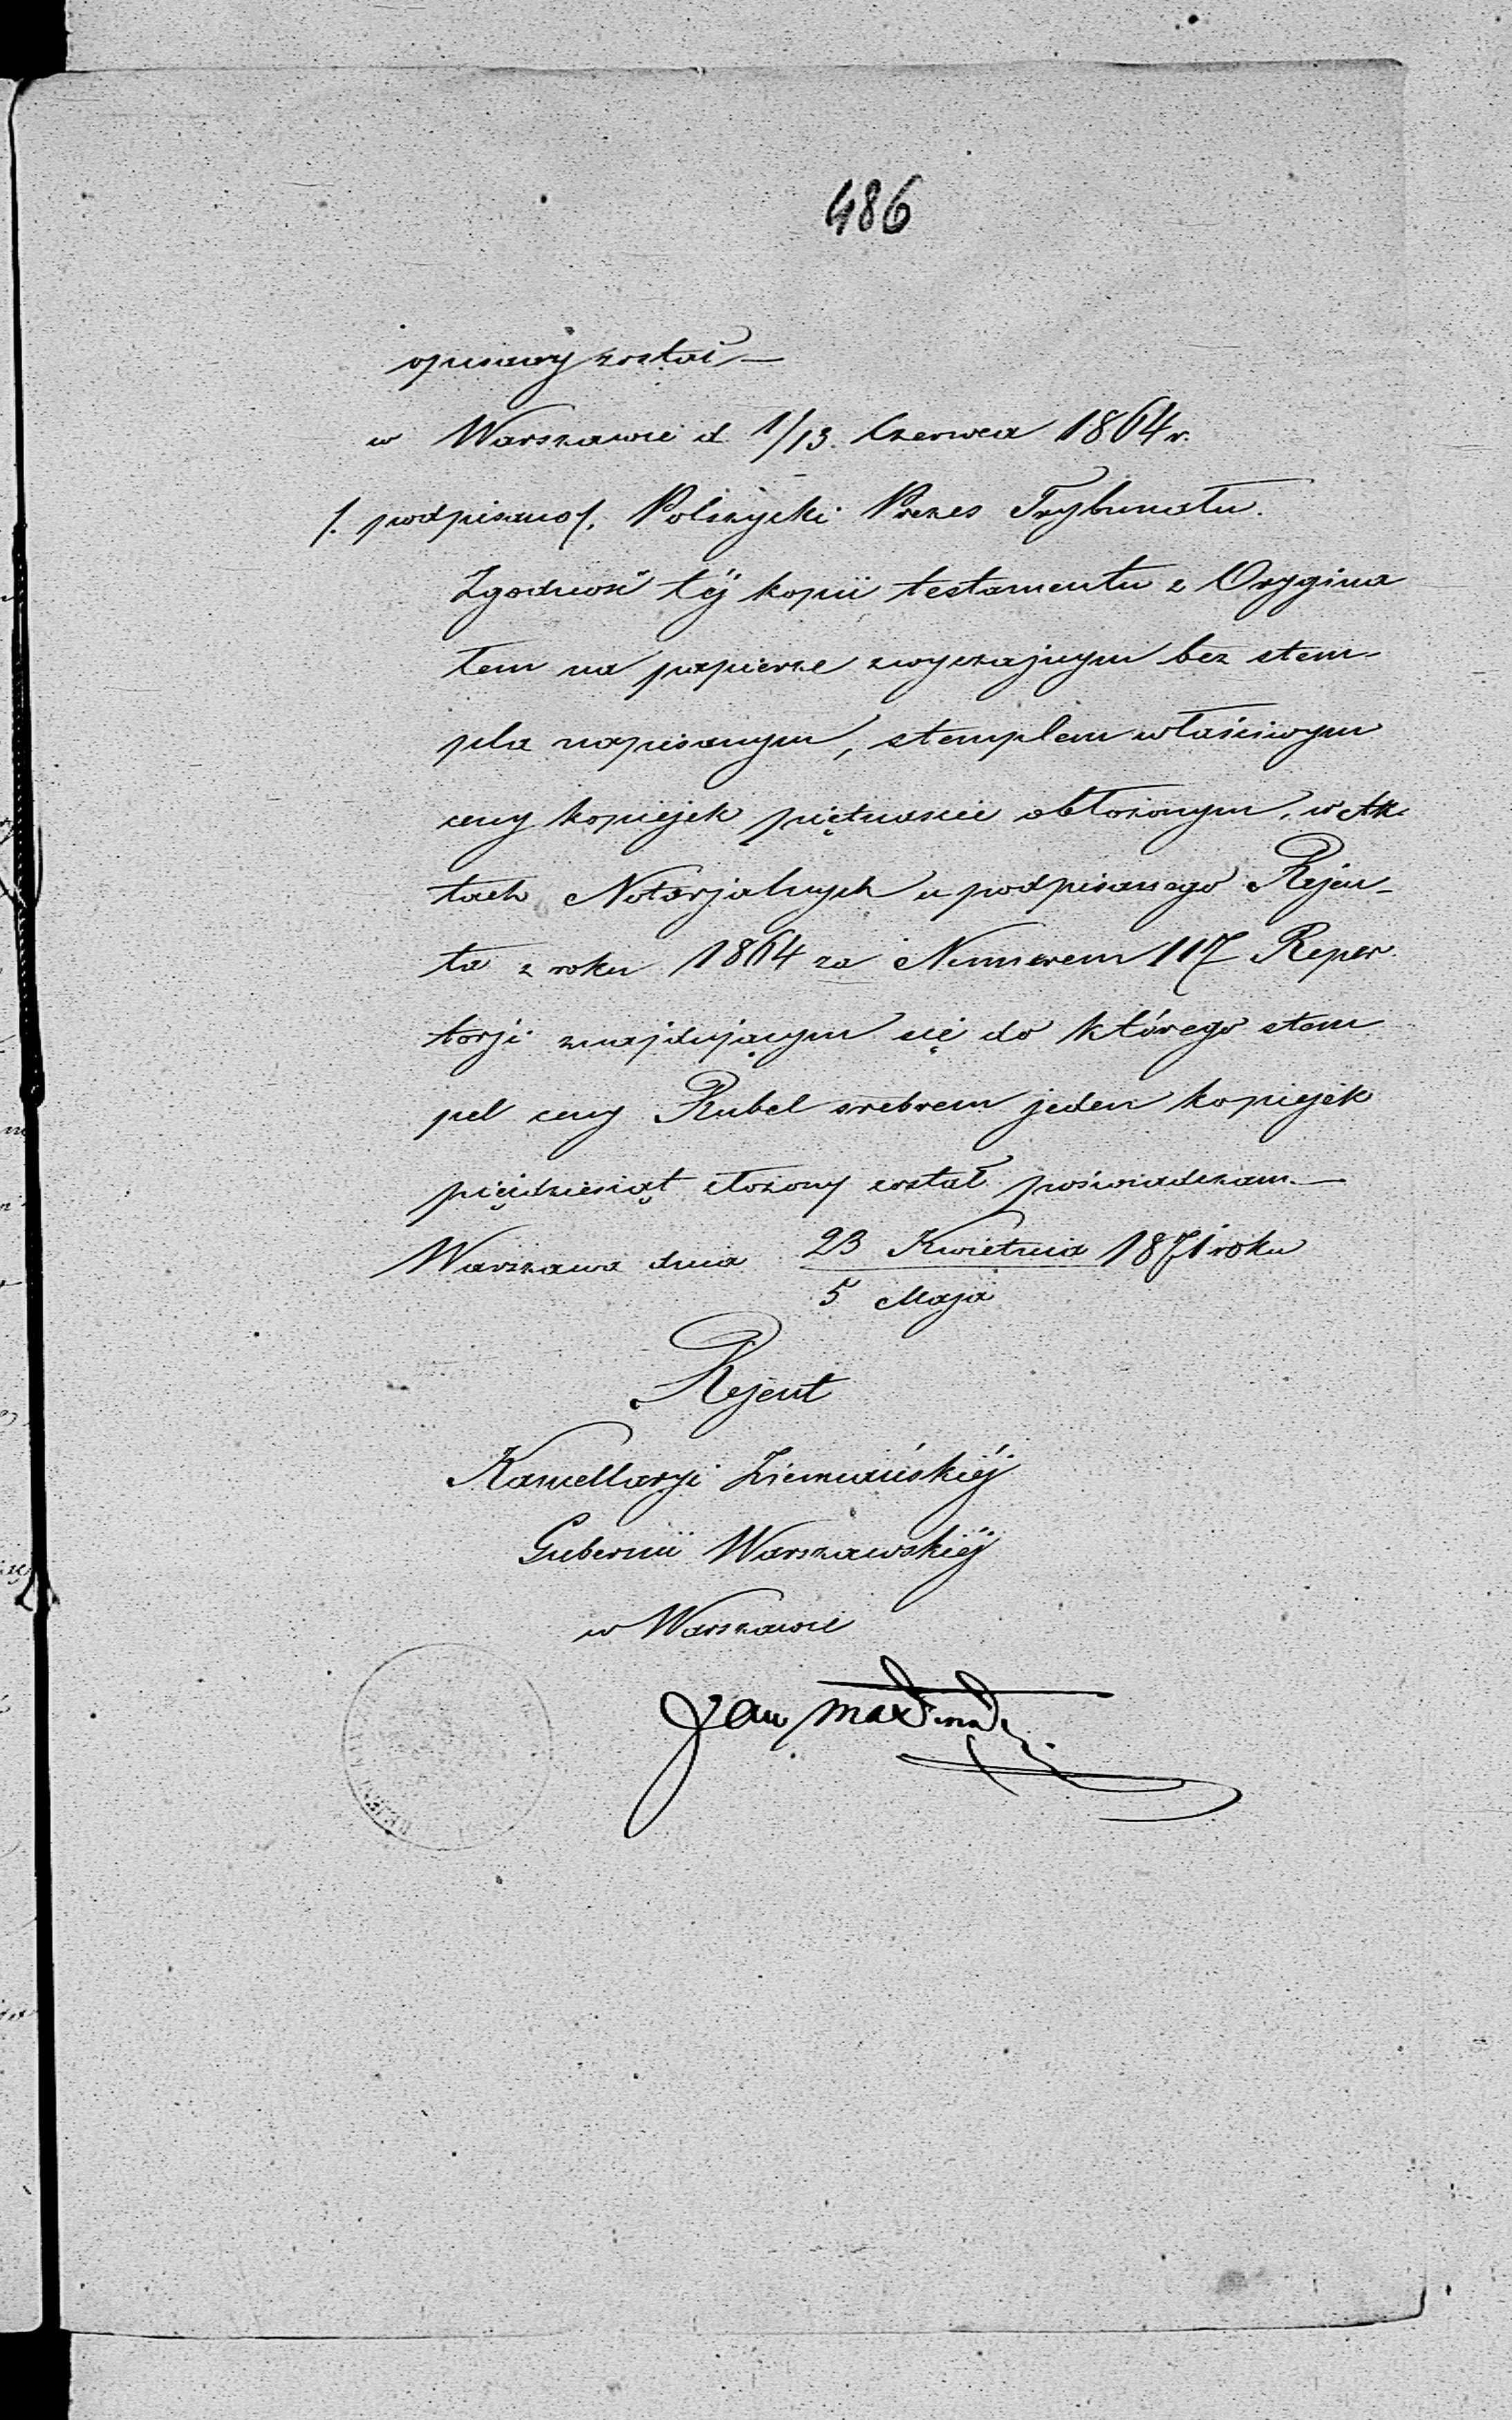 486
opisany został —
w Warszawie d. 1/13. Czerwca 1864 r.
/. podpisano /. Polszycki Prezes Trybunału.
Zgodność téj kopii testamentu z Orygina
łem na papierze zwyczajnym bez stem-
pla napisanym, stemplem właściwym
ceny kopiejek piętnaście obłożonym, w Ak
tach Notarjalnych u podpisanego Rejen-
ta z roku 1864 za Numerem 117 Reper
torji znajdującym się do którego stem
pel ceny Rubel srebrem jeden kopiejek
pięćdziesiąt złożony został poświadczam. —
Warszawa dnia 23 Kwietnia 1871 roku
5 Maja
Rejent
Kancellaryi Ziemiańskiéj
Gubernii Warszawskiéj
w Warszawie
Jan